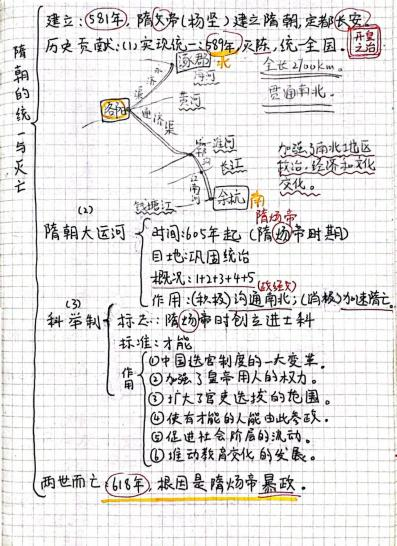 隋朝的统一与灭亡
建立:581年,隋文帝(杨坚)建立隋朝,定都长安。
历史贡献:(1)实现统一:589年灭陈,统一全国。
开皇之治
涿郡 北
全长2700km。
永济渠
海河
贯通南北。
黄河
洛阳
通济渠
淮河
长江
加强了南北地区
政治、经济和文化
交化。
江南河
余杭 南
钱塘江
隋炀帝
(2)
隋朝大运河
时间:605年起(隋炀帝时期)
目地:巩固统治
概况:1+2+3+4+5
作用:(积极)沟通南北;(消极)加速隋亡。
(3)
科举制
标志:隋炀帝时创立进士科
标准:才能
作用
①中国选官制度的一大变革。
②加强了皇帝用人的权力。
③扩大了官吏选拔的范围。
④使有才能的人能由此参政。
⑤促进社会阶层的流动。
⑥推动教育文化的发展。
两世而亡:618年,根因是隋炀帝暴政。